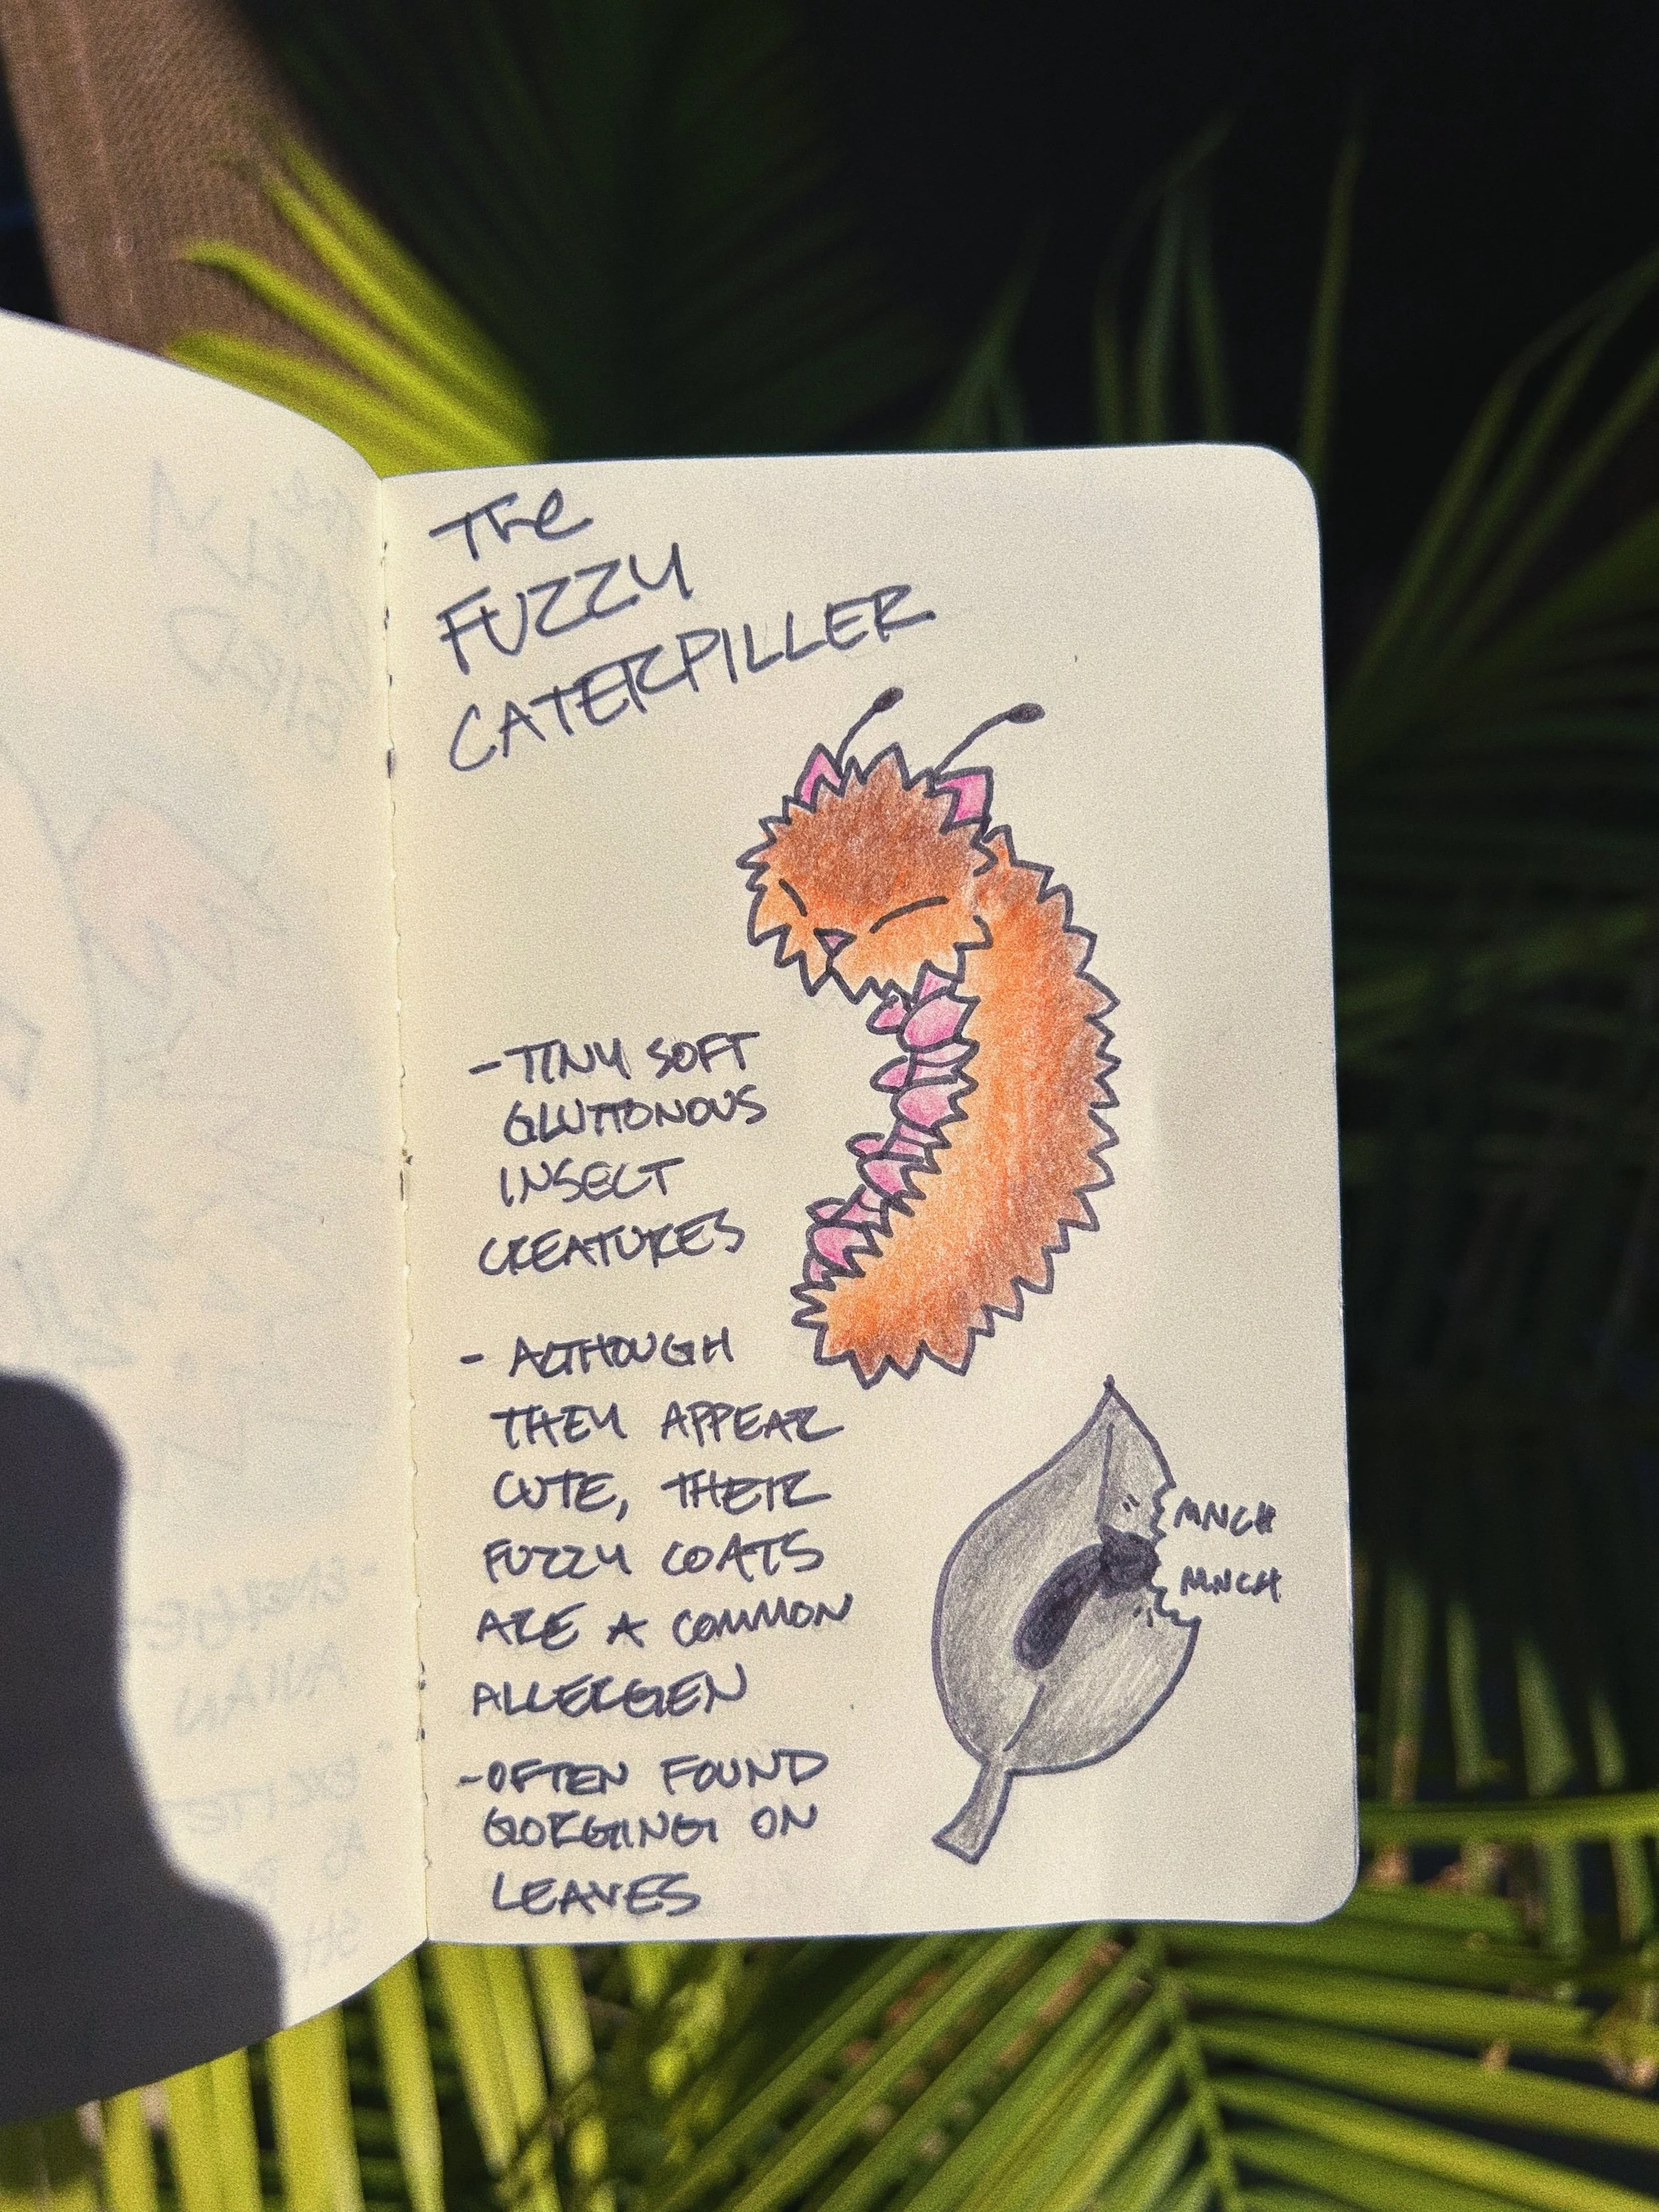 The
FUZZY
CATERPILLER
- TINY SOFT
GLUTTONOUS
INSECT
CREATURES
- ALTHOUGH
THEY APPEAR
CUTE, THEIR
FUZZY COATS
ARE A COMMON
ALLERGEN
- OFTEN FOUND
GORGING ON
LEAVES
MNCH
MNCH